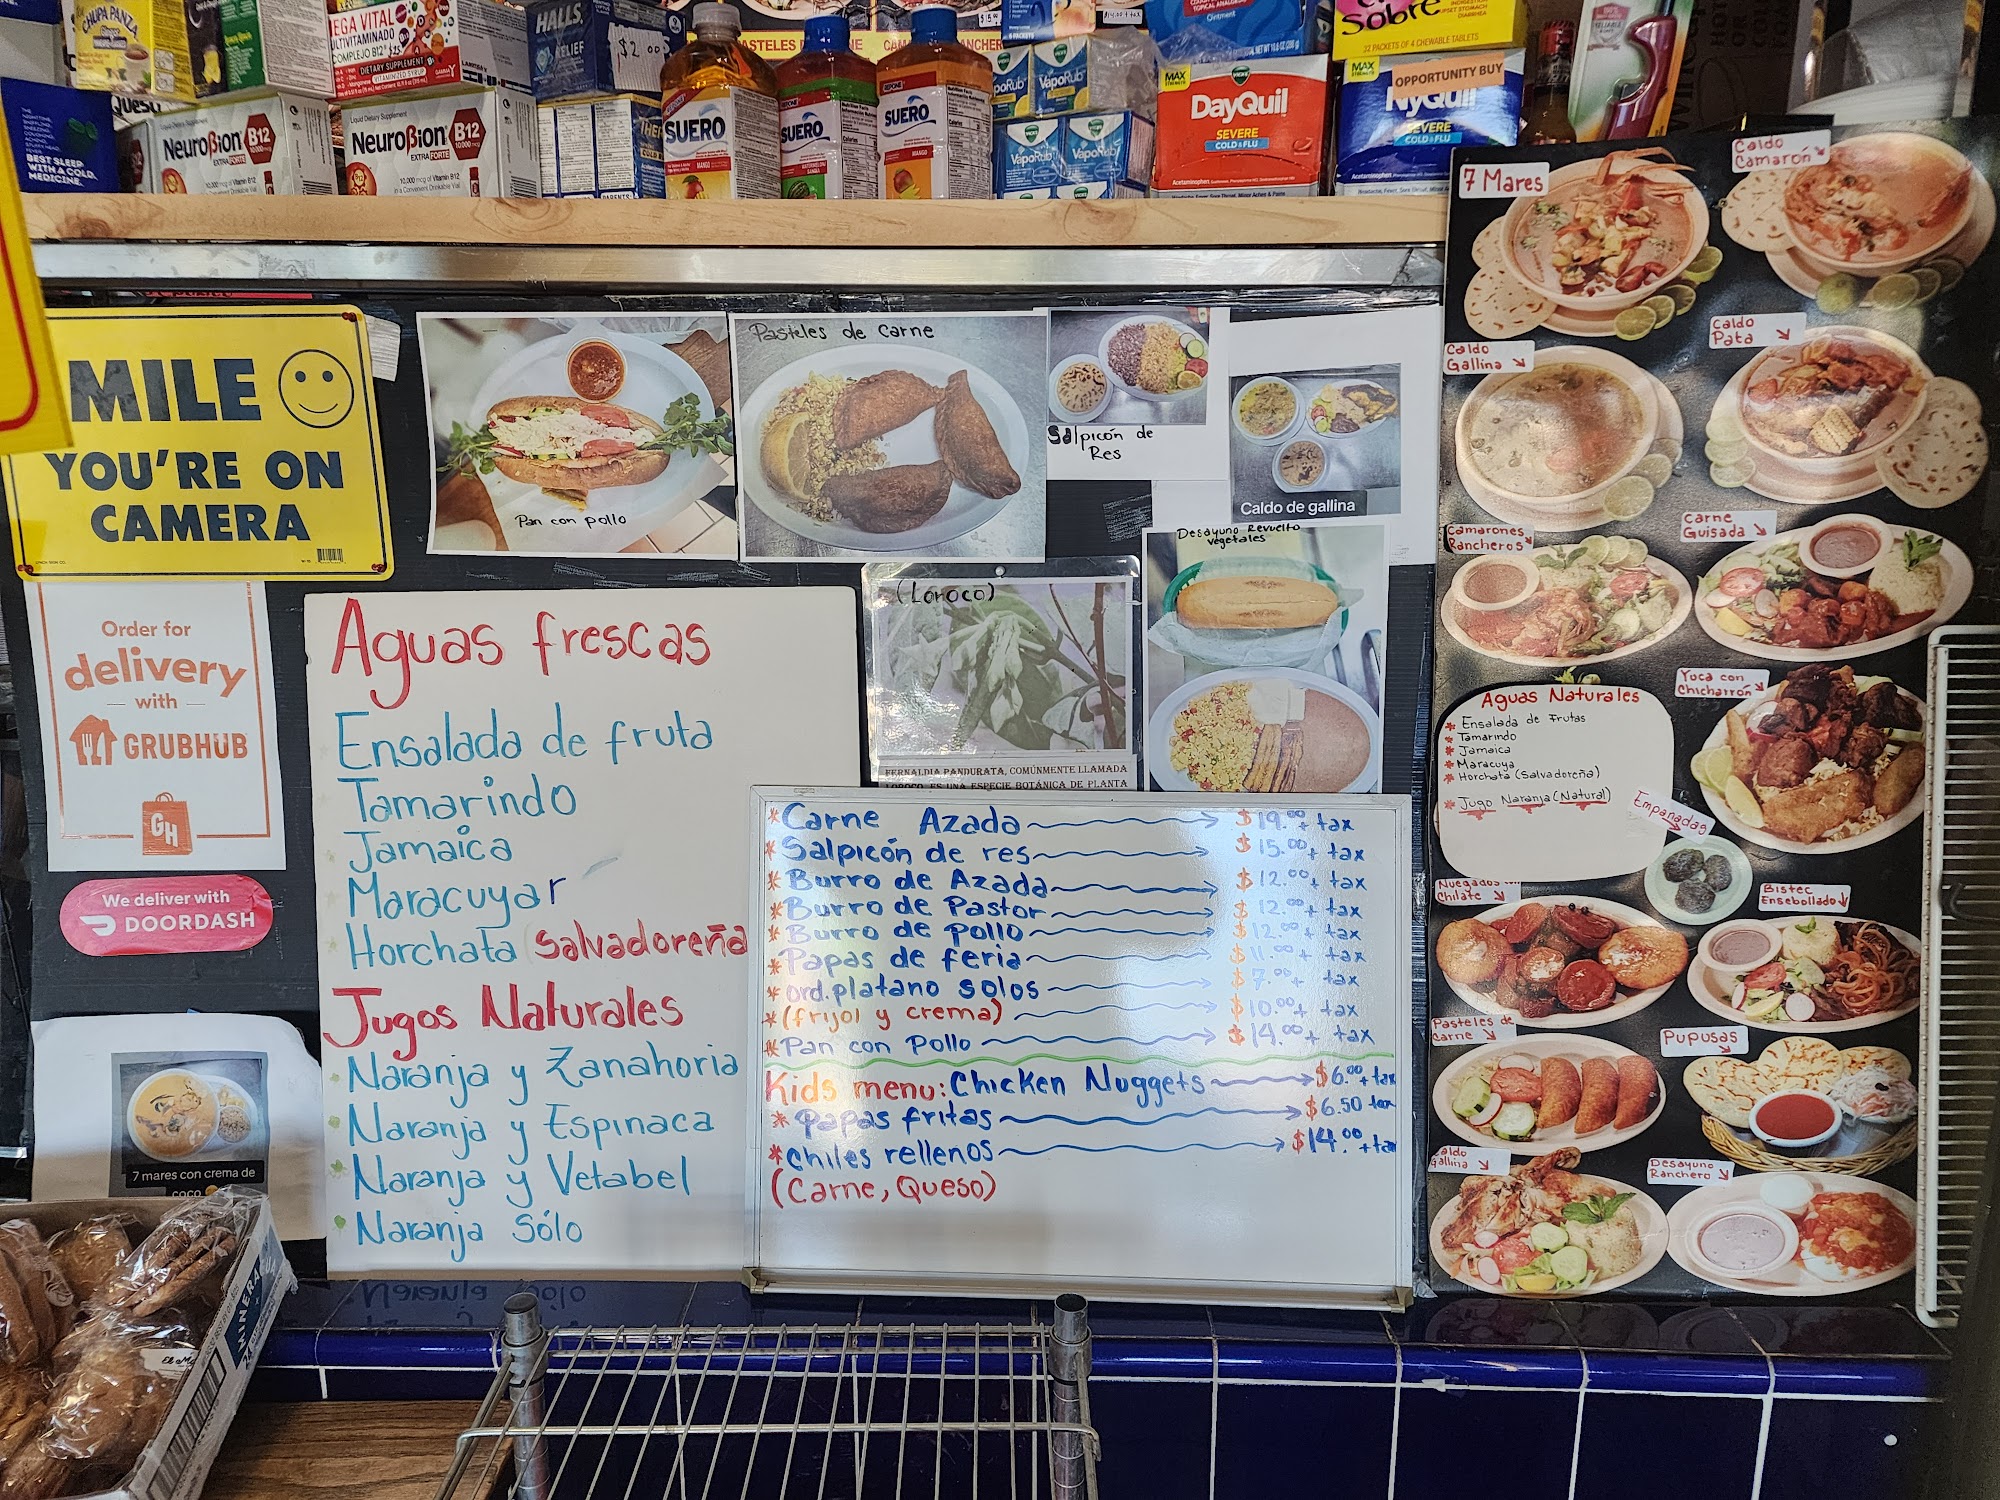 CHUPA PANZA
MEGA VITAL
MULTIVITAMINADO
COMPLEJO B12
DIETARY SUPPLEMENT
VITAMINIZED SYRUP
HALLS
RELIEF
$2.00
BEST SLEEP
WITH A COLD
MEDICINE.
Liquid Dietary Supplement
NeuroBion B12
EXTRA FORTE
10,000 mcg of Vitamin B12
Liquid Dietary Supplement
NeuroBion B12
EXTRA FORTE
10,000 mcg of Vitamin B12
in a Convenient Drinkable Vial
SUERO
MANGO
SUERO
SUERO
VapoRub
VapoRub
VapoRub
VICKS
MAX
STRENGTH
DayQuil
SEVERE
COLD & FLU
MAX
STRENGTH
OPPORTUNITY BUY
NyQuil
SEVERE
COLD & FLU
Sobre
32 PACKETS OF 4 CHEWABLE TABLETS
MILE
YOU'RE ON
CAMERA
Order for
delivery
with
GRUBHUB
GH
We deliver with
DOORDASH
7 mares con crema de
coco
Pan con pollo
Pasteles de Carne
Salpicón de
Res
Caldo de gallina
(Loroco)
FERNALDIA PANDURATA, COMÚNMENTE LLAMADA
LOROCO, ES UNA ESPECIE BOTÁNICA DE PLANTA
Desayuno Revuelto
Vegetales
Aguas frescas
Ensalada de fruta
Tamarindo
Jamaica
Maracuyar
Horchata Salvadoreña
Jugos Naturales
Naranja y Zanahoria
Naranja y Espinaca
Naranja y Vetabel
Naranja Sólo
* Carne Azada $19.00 + tax
* Salpicón de res $15.00 + tax
* Burro de Azada $12.00 + tax
* Burro de Pastor $12.00 + tax
* Burro de Pollo $12.00 + tax
* Papas de feria $11.00 + tax
* ord. platano solos $7.00 + tax
* (frijol y crema) $10.00 + tax
* Pan con Pollo $14.00 + tax
Kids menu: Chicken Nuggets $6.00 + tax
* Papas fritas $6.50 tax
* chiles rellenos $14.00 + ta
(Carne, Queso)
7 Mares
Caldo
Camaron
Caldo
Gallina
Caldo
Pata
Camarones
Rancheros
Carne
Guisada
Aguas Naturales
* Ensalada de Frutas
* Tamarindo
* Jamaica
* Maracuya
* Horchata (Salvadoreña)
* Jugo Naranja (Natural)
Yuca con
Chicharrón
Empanadas
Nuegados con
Chilate
Bistec
Ensebollado
Pasteles de
Carne
Pupusas
Caldo
Gallina
Desayuno
Ranchero